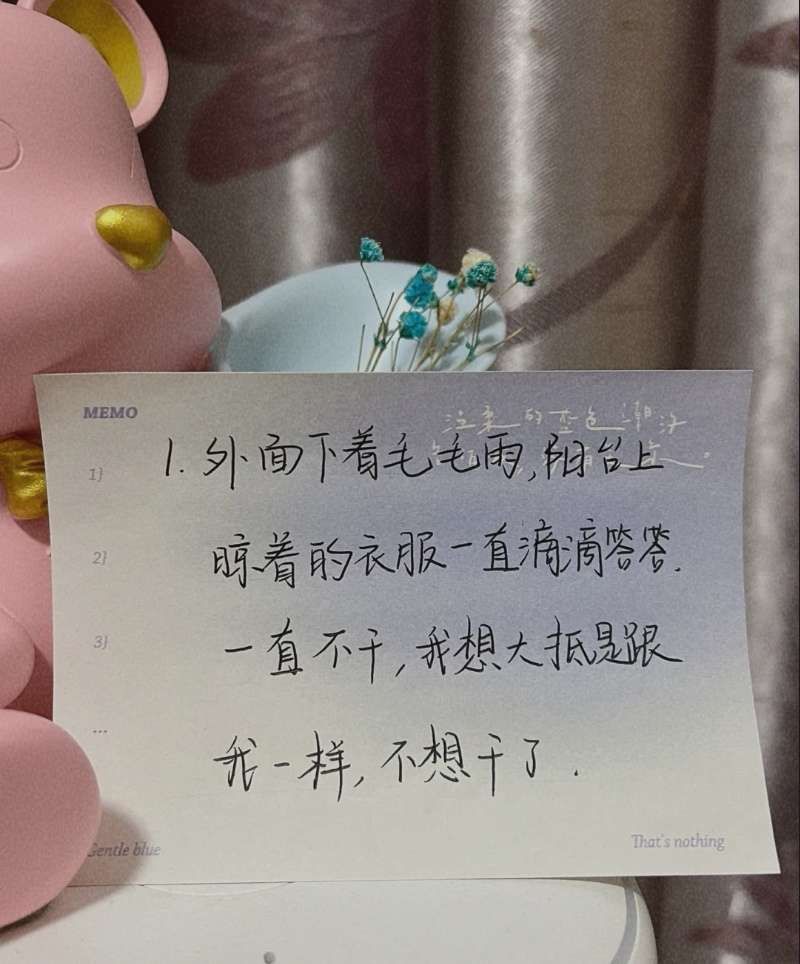 MEMO
1. 外面下着毛毛雨,阳台上
1}
晾着的衣服一直滴滴答答.
2}
一直不干,我想大抵是跟
3}
我一样,不想干了.
...
Gentle blue
That's nothing